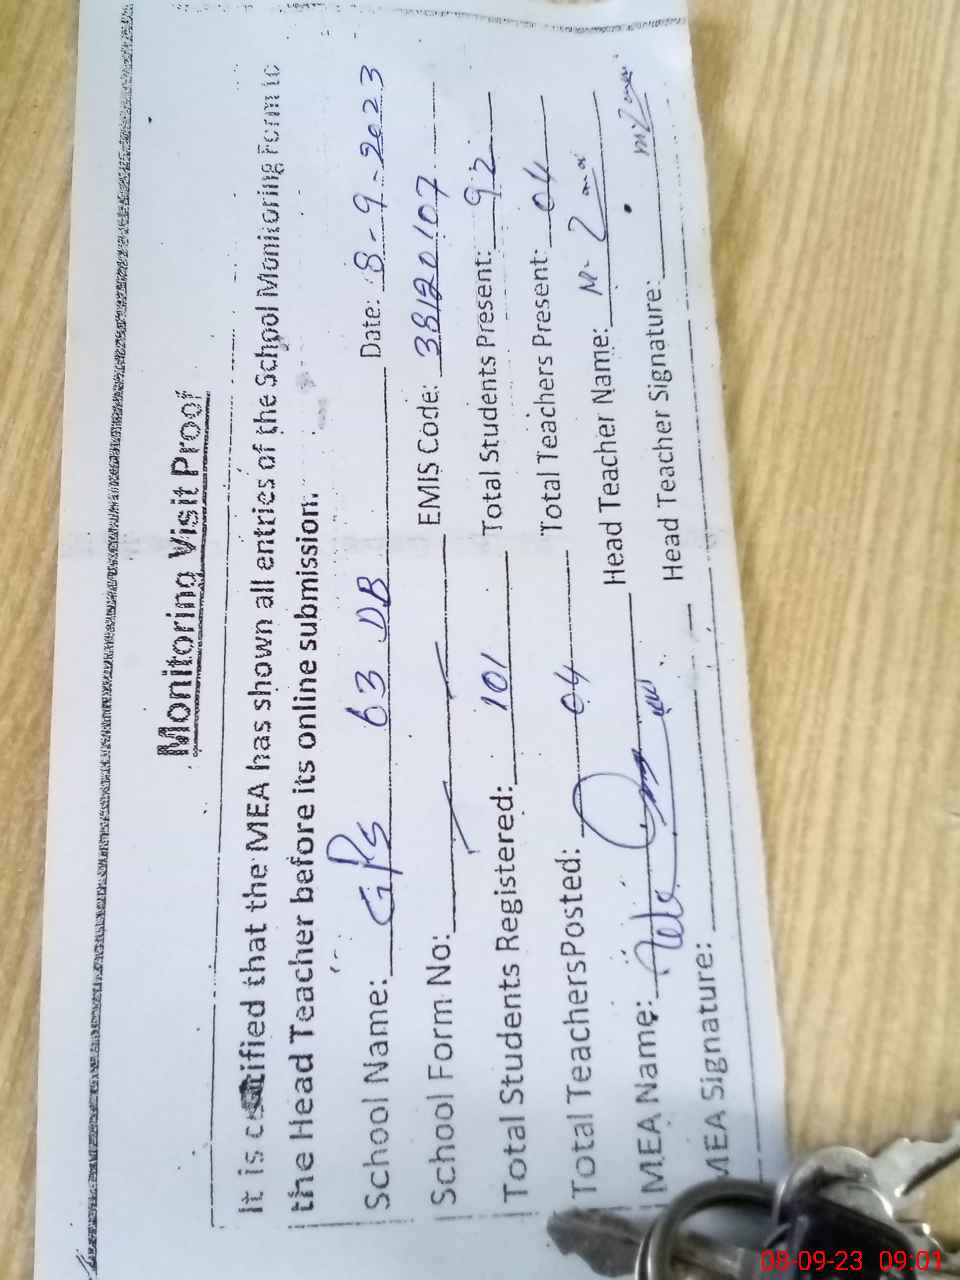 Monitoring Visit Proof
It is certified that the MEA has shown all entries of the School Monitoring Form to
the Head Teacher before its online submission.
School Name: GPS 63 DB Date: 8-9-2023
School Form No: EMIS Code: 38120107
Total Students Registered: 101 Total Students Present: 92
Total TeachersPosted: 04 Total Teachers Present: 04
MEA Name: Head Teacher Name:
MEA Signature: Head Teacher Signature:
08-09-23 09:01